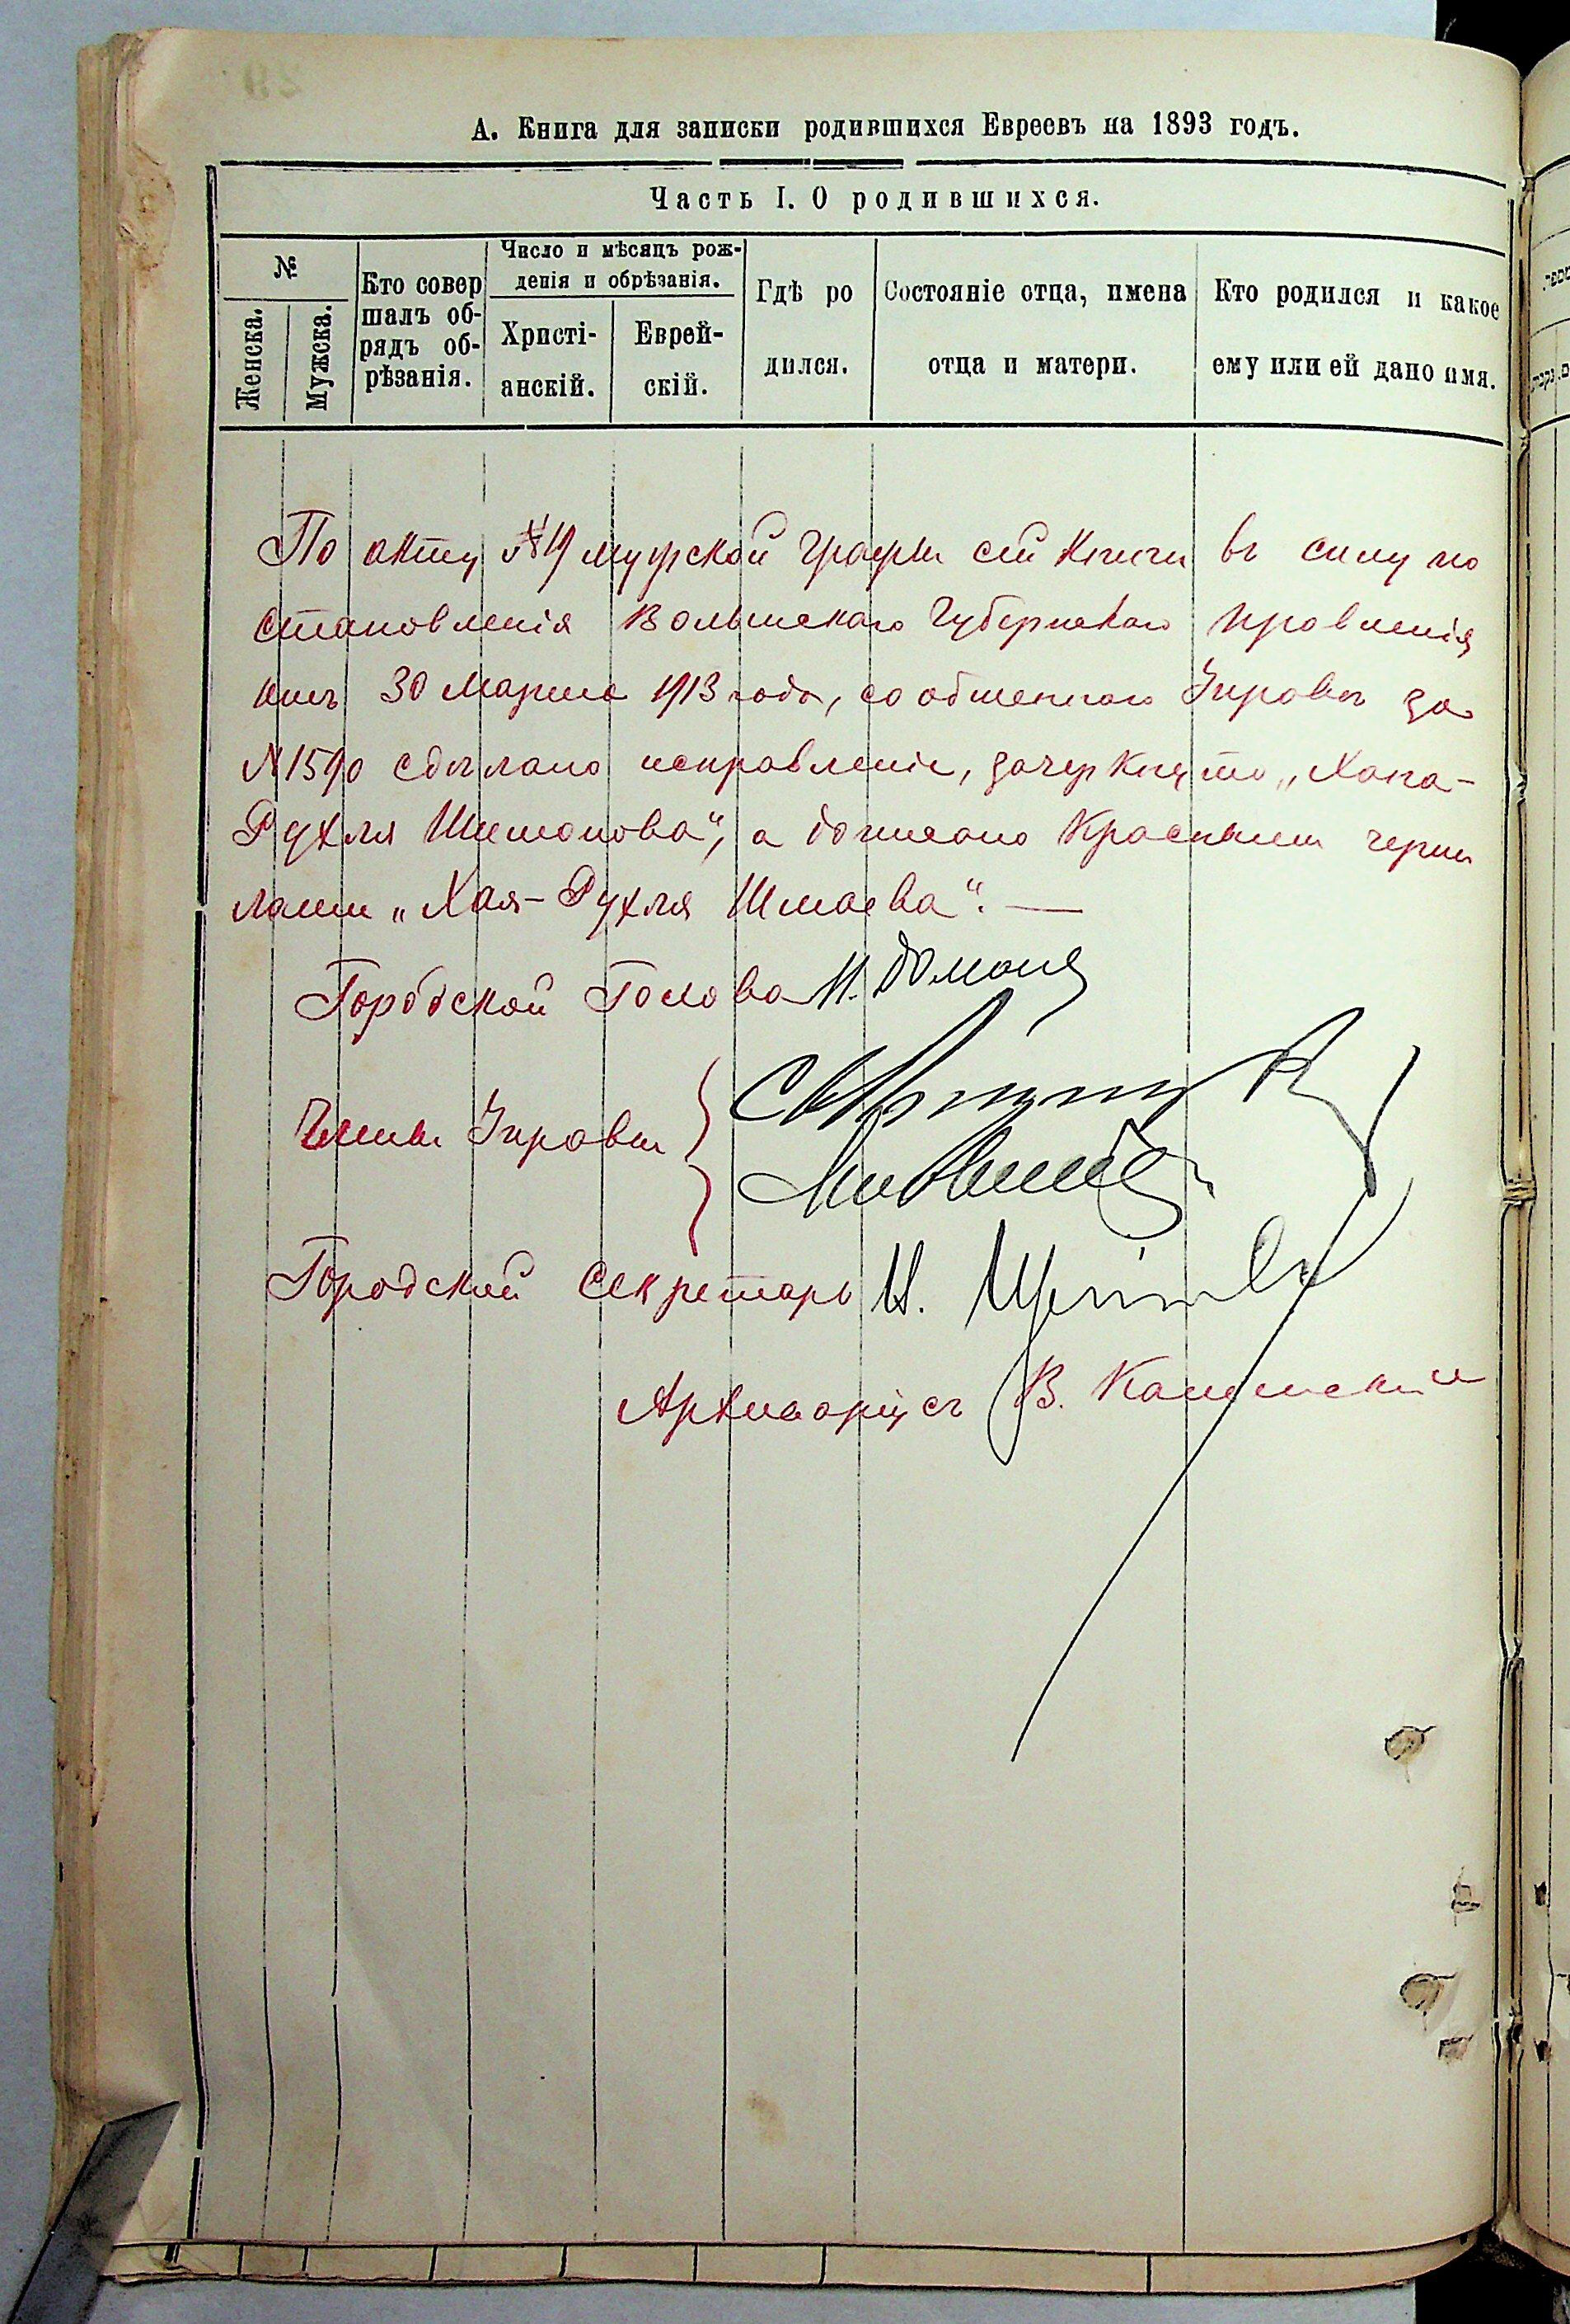 А. Книга для записки родившихся Евреевъ на 1893 годъ.
Часть I. О родившихся.
№
Женска.
Мужска.
Кто совер
шалъ об-
рядъ об-
рѣзанія.
Число и мѣсяцъ рож-
денія и обрѣзанія.
Христі-
анскій.
Еврей-
скій.
Гдѣ ро
дился.
Состояніе отца, имена
отца и матери.
Кто родился и какое
ему или ей дано имя.
По акту мужской графы сей книги въ силу по
становленія Волынскаго Губернскаго Правленія
отъ 30 Марта 1913 года, сообщеннаго Управѣ за
№1590 сдѣлано исправленіе, зачеркнуто „Хана-
Рухля Шимонова“, а дописано красными черни
лами „Хая-Рухля Шмаева“. —
Городской Голова И.
Члены Управы
Городской Секретарь И.
Архиваріусъ В. Каменскій